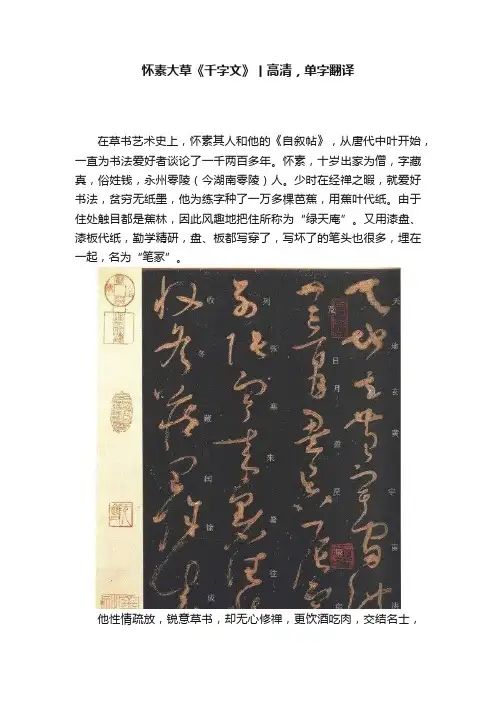 怀素大草《千字文》丨高清，单字翻译
在草书艺术史上，怀素其人和他的《自叙帖》，从唐代中叶开始，
一直为书法爱好者谈论了一千两百多年。怀素，十岁出家为僧，字藏
真，俗姓钱，永州零陵（今湖南零陵）人。少时在经禅之暇，就爱好
书法，贫穷无纸墨，他为练字种了一万多棵芭蕉，用蕉叶代纸。由于
住处触目都是蕉林，因此风趣地把住所称为“绿天庵”。又用漆盘、
漆板代纸，勤学精研，盘、板都写穿了，写坏了的笔头也很多，埋在
一起，名为“笔冢”。
天地玄黄宇宙洪
荒日月盈昃辰宿
列张寒来暑往
收冬藏闰馀成
他性情疏放，锐意草书，却无心修禅，更饮酒吃肉，交结名士，